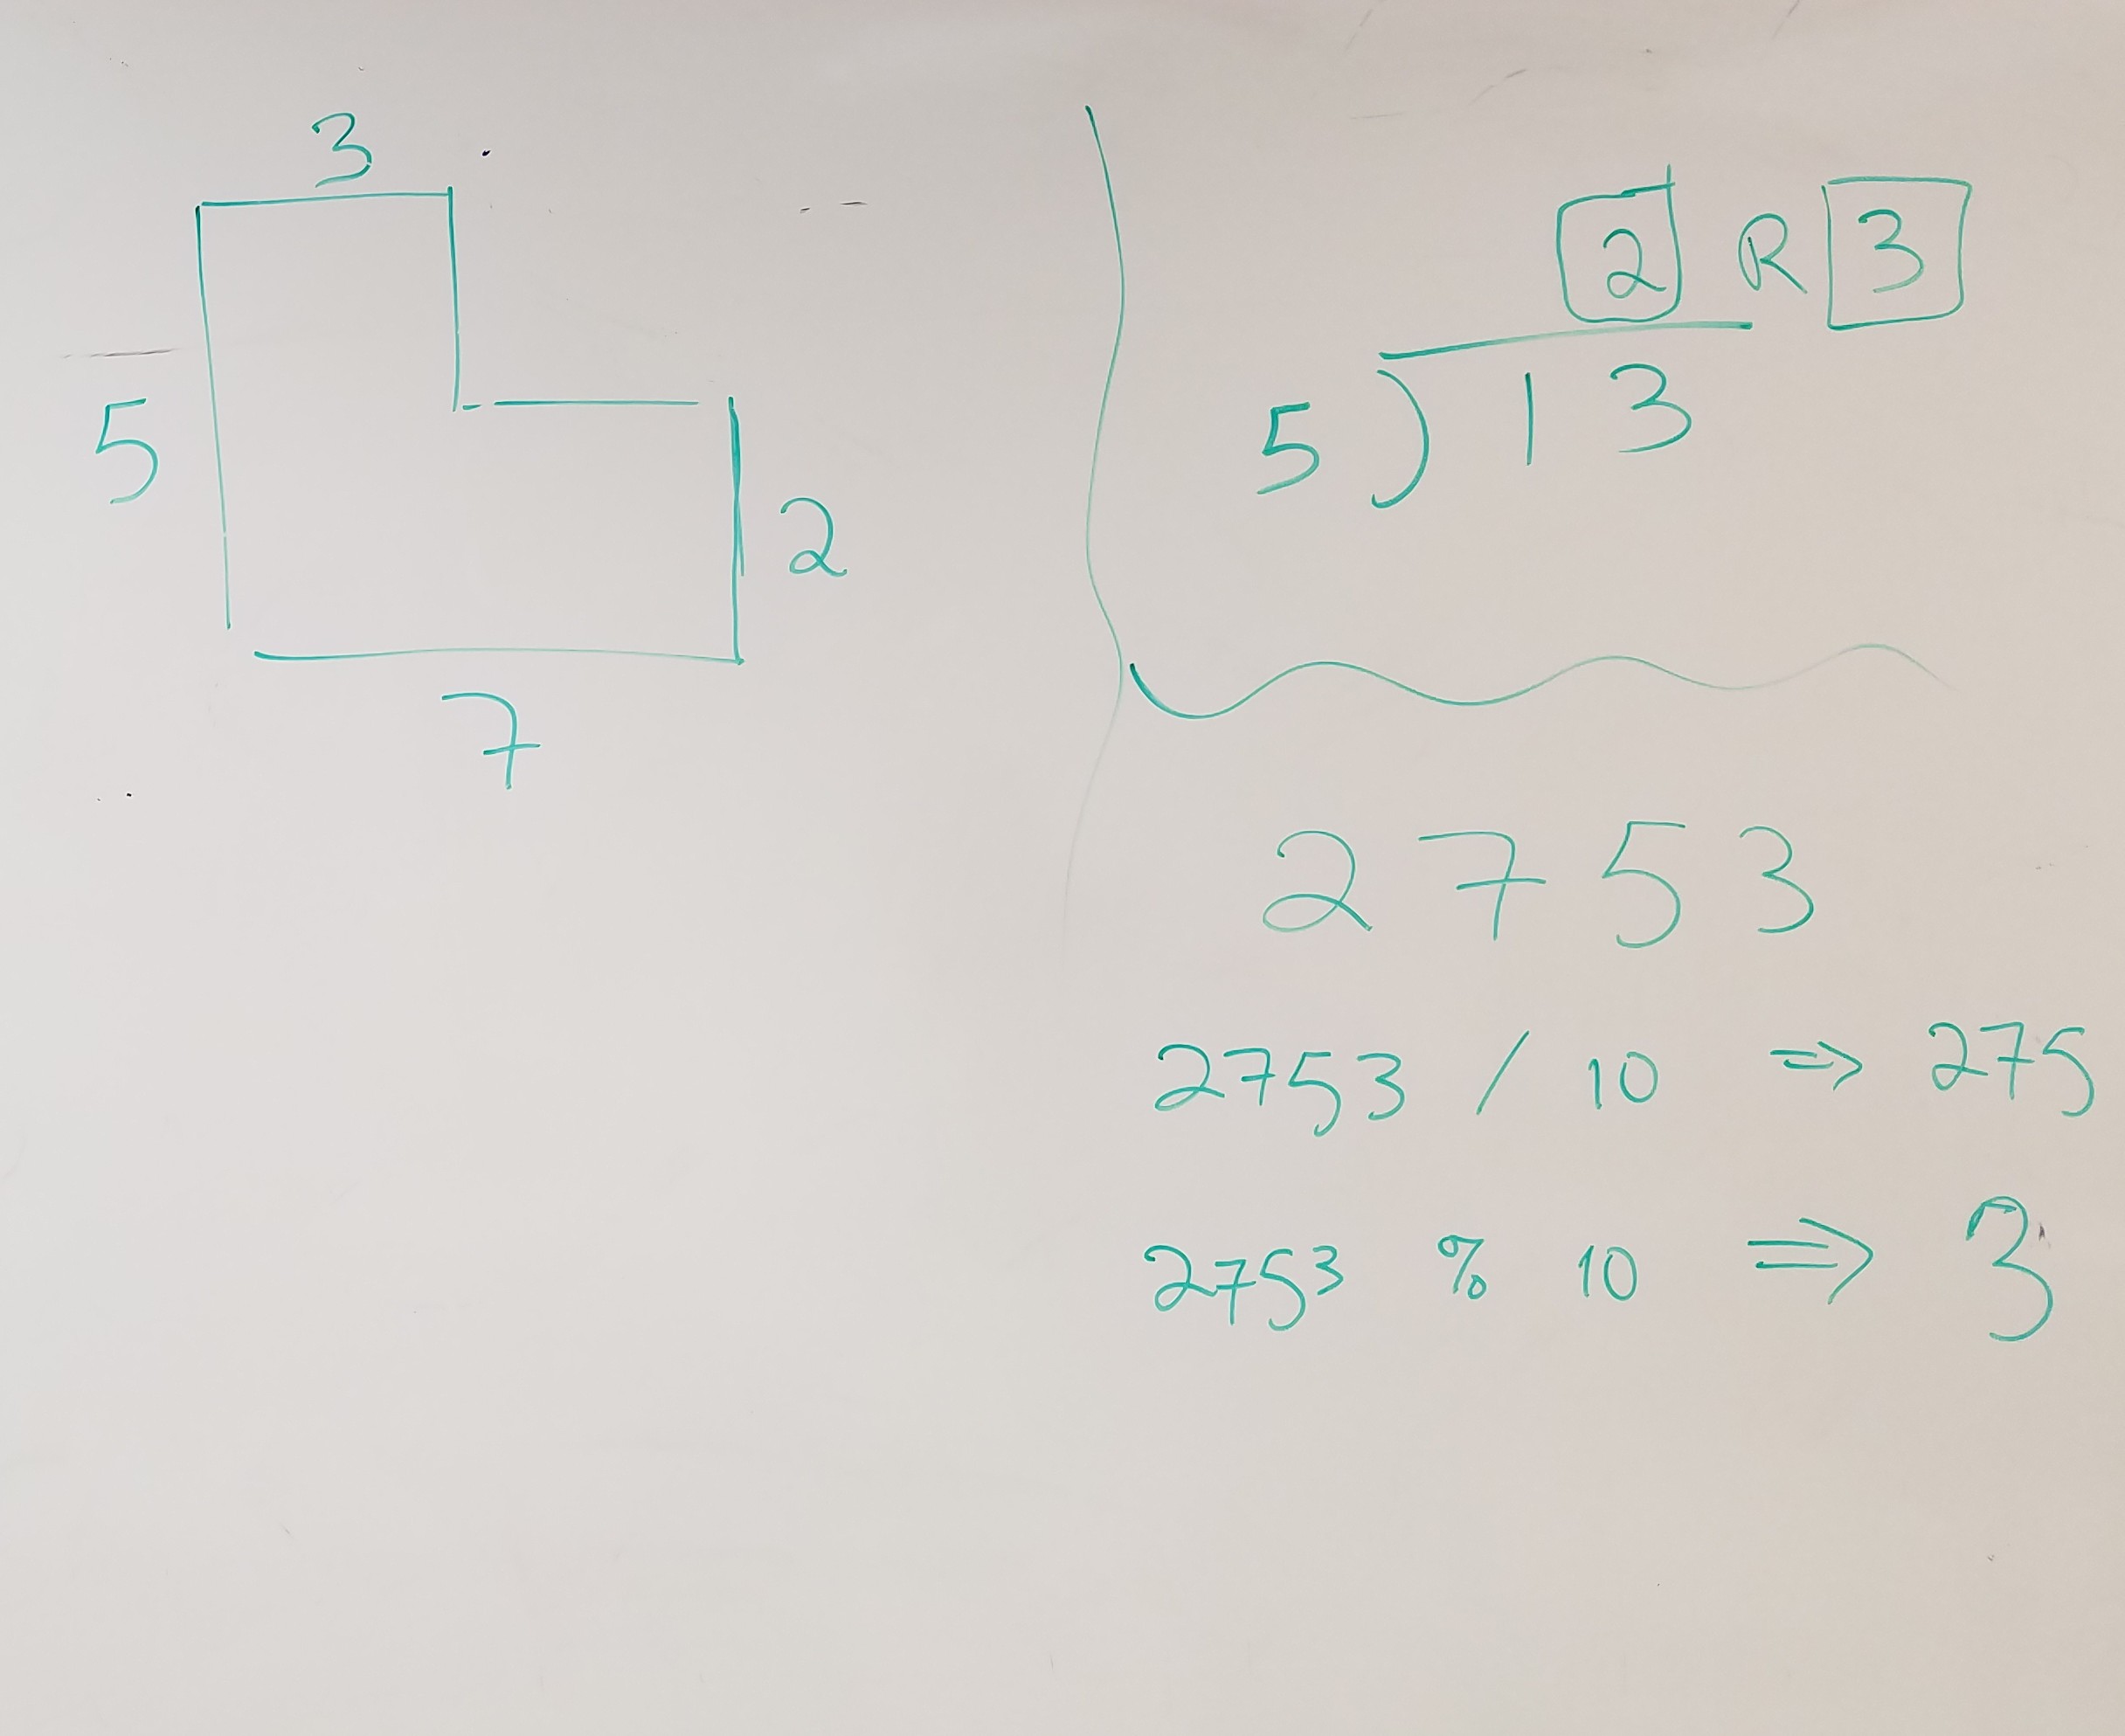 3
5
2
7
2 R 3
5 ) 1 3
2 7 5 3
2753 / 10 => 275
2753 % 10 => 3